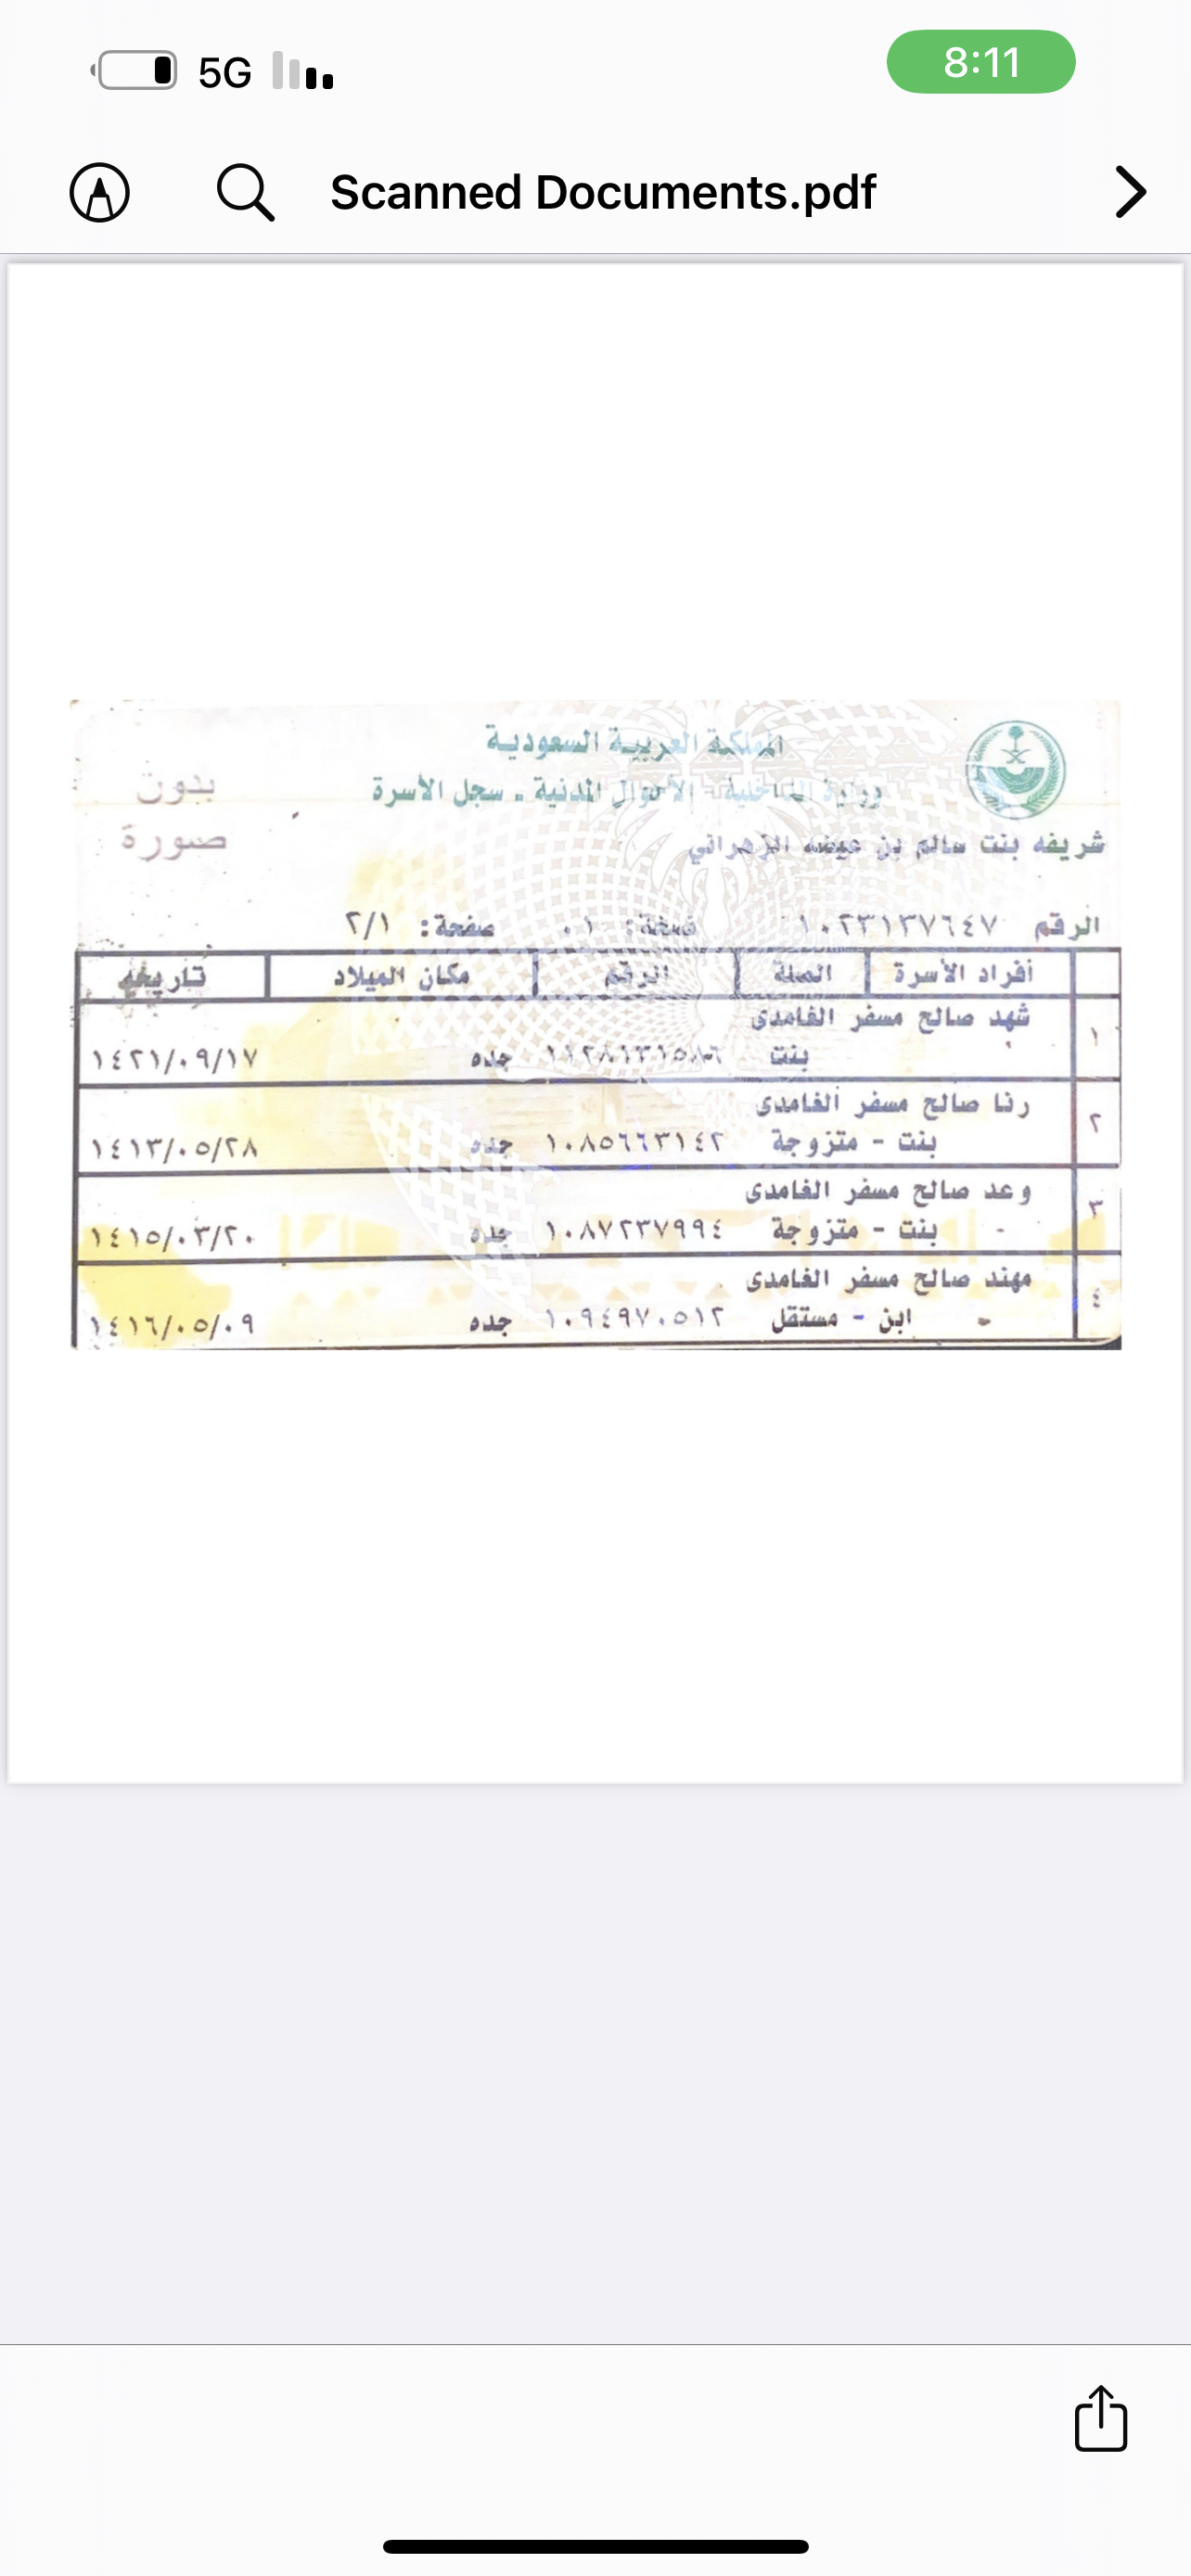 5G
8:11
Scanned Documents.pdf
المملكة العربية السعودية
وزارة الداخلية - الأحوال المدنية - سجل الأسرة
بدون
صورة
شريفه بنت سالم بن عيضه الزهراني
الرقم ١٠٢٣١٣٧٦٤٧ نسخة: ٠١ صفحة: ٢/١
أفراد الأسرة الصلة الرقم مكان الميلاد تاريخه
١ شهد صالح مسفر الغامدى
بنت جده ١٤٢١/٠٩/١٧
٢ رنا صالح مسفر الغامدى
بنت - متزوجة ١٠٨٥٦٦٣١٤٢ جده ١٤١٣/٠٥/٢٨
٣ وعد صالح مسفر الغامدى
بنت - متزوجة ١٠٨٧٢٣٧٩٩٤ جده ١٤١٥/٠٣/٢٠
٤ مهند صالح مسفر الغامدى
ابن - مستقل ١٠٩٤٩٧٠٥١٢ جده ١٤١٦/٠٥/٠٩